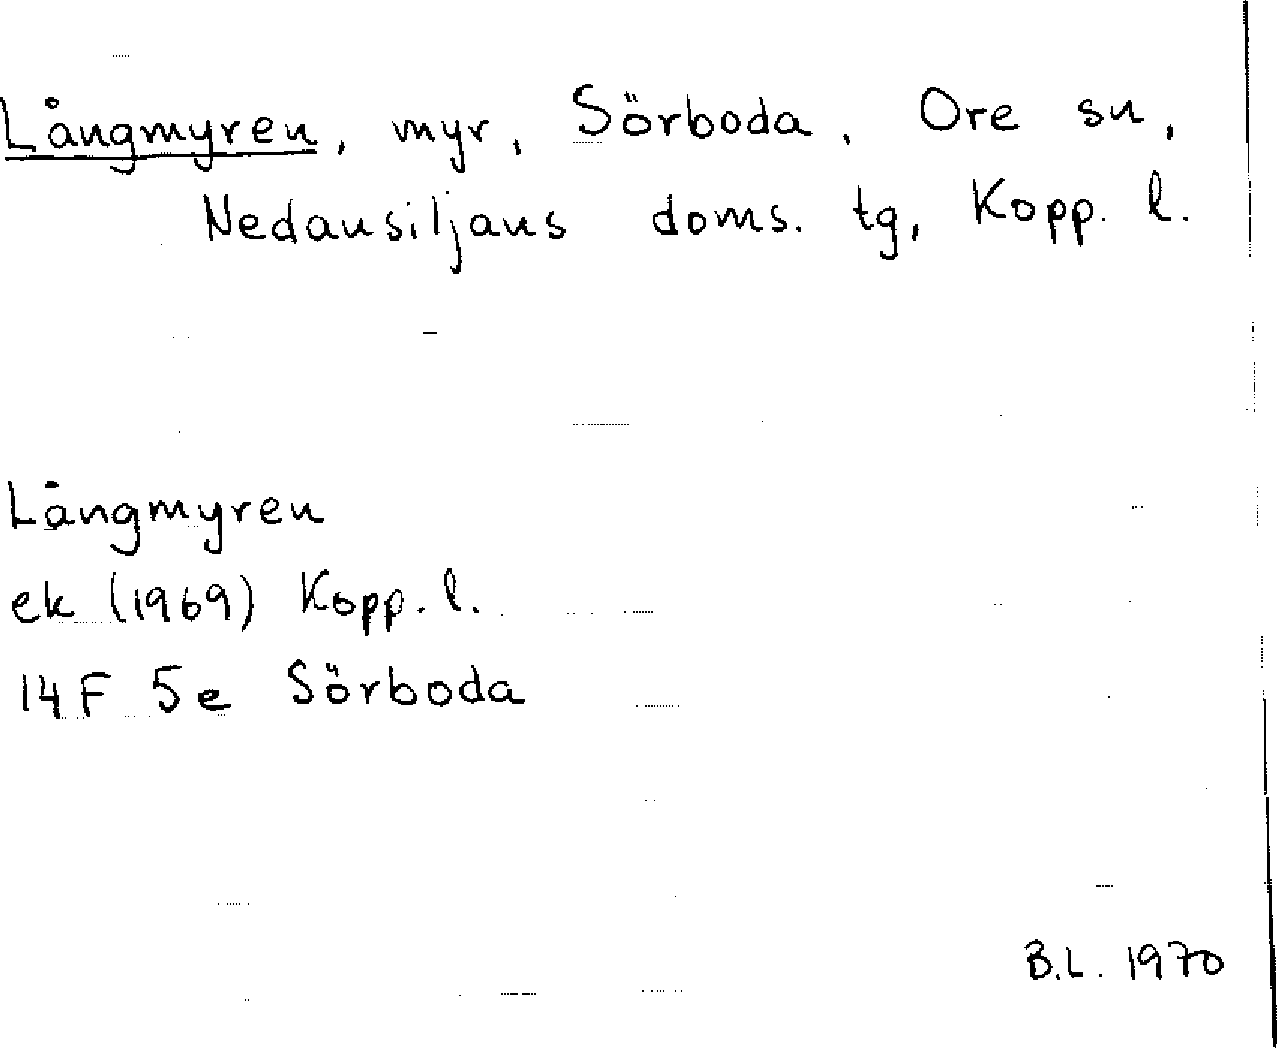 Långmyren, myr, Sörboda, Ore sn,
Nedansiljans doms. tg, Kopp. l.
Långmyren
ek (1969) Kopp. l.
14 F 5e Sörboda
B.L. 1970